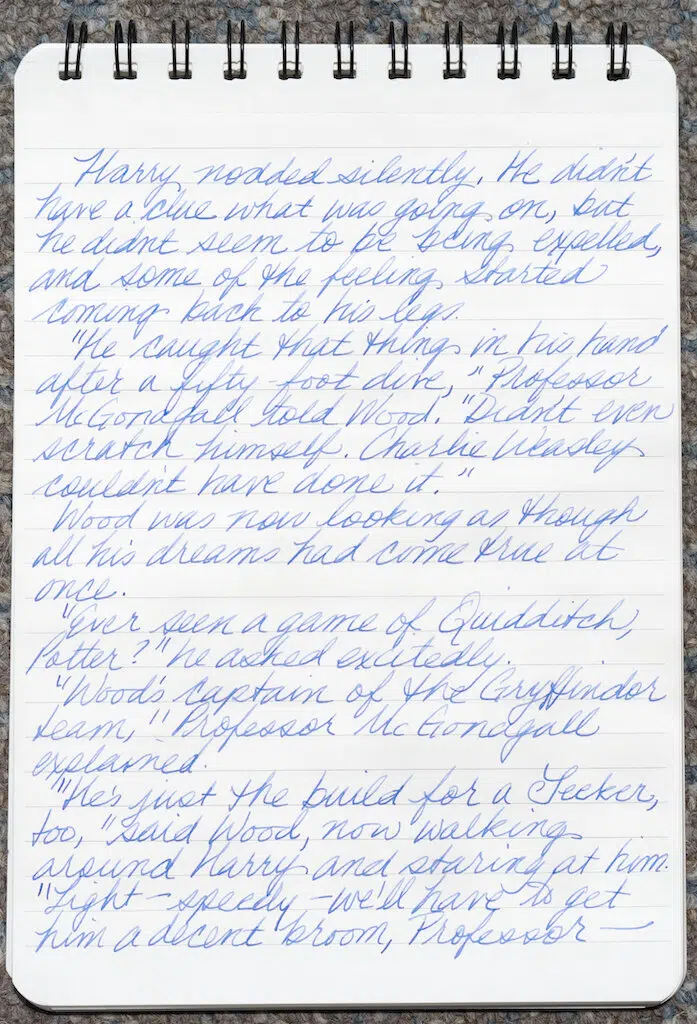 Harry nodded silently. He didn't
have a clue what was going on, but
he didn't seem to be being expelled,
and some of the feeling started
coming back to his legs.
"He caught that thing in his hand
after a fifty-foot dive," Professor
McGonagall told Wood. "Didn't even
scratch himself. Charlie Weasley
couldn't have done it."
Wood was now looking as though
all his dreams had come true at
once.
"Ever seen a game of Quidditch,
Potter?" he asked excitedly.
"Wood's captain of the Gryffindor
team," Professor McGonagall
explained.
"He's just the build for a Seeker,
too," said Wood, now walking
around Harry and staring at him.
"Light – speedy – we'll have to get
him a decent broom, Professor —